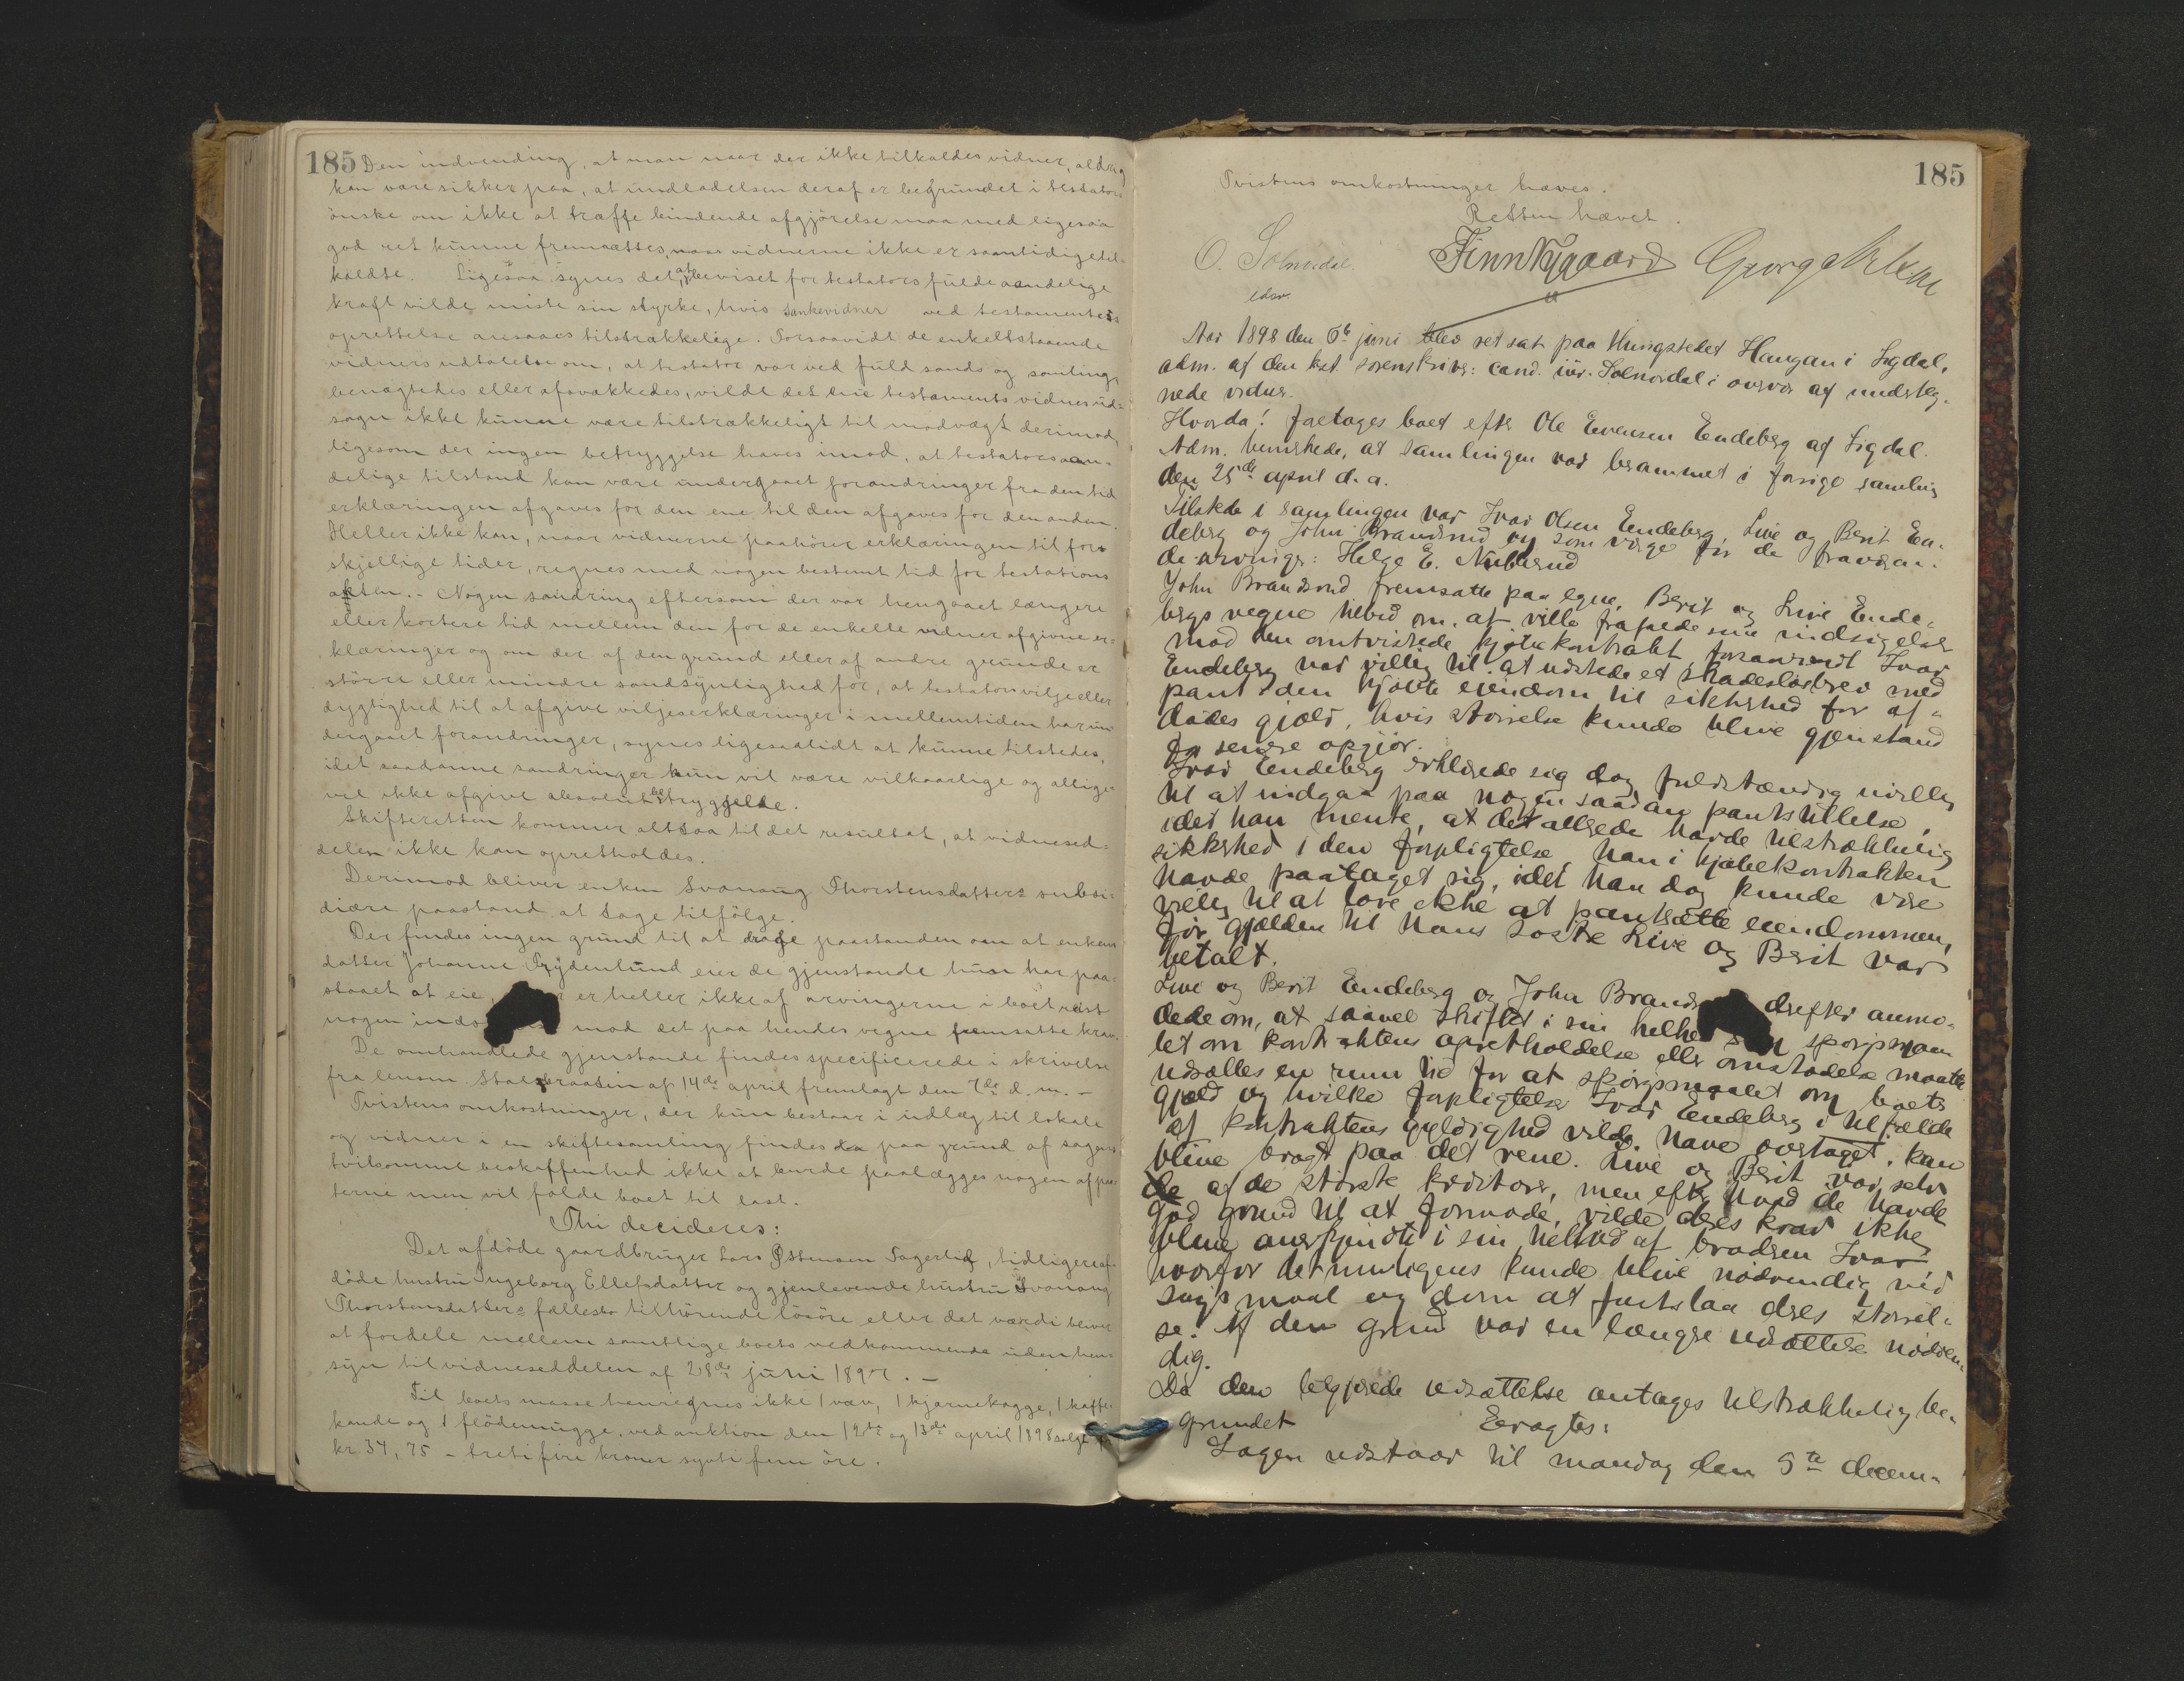 185 Den indvending, at man naar der ikke tilkaldes vidner, aldrig
kan være sikker paa, at undladelsen deraf er begrundet i testators
ønske om ikke at træffe bindende afgjörelse maa med ligesaa
god ret kunne fremsættes, naar vidnerne ikke er samtidige til-
kaldte. Ligesaa synes det, at beviset for testators fulde aandelige
kraft vilde miste sin styrke, hvis vidner ved testamentets
oprettelse ansaaes tilstrækkelige. Forsaavidt de enkeltstaaende
vidners udtalelse om, at testator var ved fuld sands og samling,
benægtedes eller afsvækkedes, vilde det ene testamentsvidnes ud-
sagn ikke kunne være tilstrækkeligt til modvægt derimod,
ligesom der ingen betryggelse haves imod, at testators aan-
delige tilstand kan være undergaaet forandringer fra den tid
erklæringen afgaves for den ene til den afgaves for den anden.
Heller ikke kan, naar vidnerne paahörer erklæringen til for-
skjellige tider, regnes med nogen bestemt tid for testations
akten. - Nogen sondring eftersom der var hengaaet længere
eller kortere tid mellem den for de enkelte vidner afgivne er-
klæringer og om der af den grund eller af andre grunde er
större eller mindre sandsynlighed for, at testators vilje eller
dygtighed til at afgive viljeserklæringer i mellemtiden har un-
dergaaet forandringer, synes ligesaalidt at kunne tilstedes,
idet saadanne sondringer kun vil være vilkaarlige og allige-
vel ikke afgive absolut betryggelse.
Skifteretten kommer altsaa til det resultat, at vidnesed-
delen ikke kan opretholdes.
Derimod bliver enken Svanaug Thorstensdatters subsi-
diære paastand at tage tilfölge.
Der findes ingen grund til at drage paastanden om at enkens
datter Johanne Frydenlund eier de gjenstande hun har paa-
staaet at eie, er heller ikke af arvingerne i boet reist
nogen mod det paa hendes vegne fremsatte krav.
De omhandlede gjenstande findes specificerede i skrivelse
fra lensm. Stalsbraaten af 14de april fremlagt den 7de d. m. -
Tvistens omkostninger, der kun bestaar i udlæg til lokale
og vidner i en skiftesamling findes da paa grund af sagens
tvilsomme beskaffenhed ikke at burde paalægges nogen af par-
terne men vil falde boet til last.
Thi decideres:
Det afdöde gaardbruger Lars Östensen Sagerlid, tidligere af-
döde hustru Ingeborg Ellefsdatter og gjenlevende hustru Svanaug
Thorstensdatters fælles tilhörende lösöre eller det værdi bliver
at fordele mellem samtlige boets vedkommende uden hen-
syn til vidneseddelen af 28de juni 1897. -
Til boets masse henregnes ikke 1 væv, 1 hjørnekagge, 1 kaffe-
kande og 1 flödemugge, ved auktion den 12te og 13de april 1898 solgt for
kr. 34,75 - tretifire kroner sytti fem öre.
185
Tvistens omkostninger hæves.
Retten hævet.
O. Solnordal Finn Nygaard George
edsv.
Aar 1898 den 6te juni blev ret sat paa thingstedet Haugan i Sigdal,
adm. af den kst. sorenskriver: cand. jur. Solnordal i overvær af underteg-
nede vidner.
Hvorda! foretages boet efter Ole Evensen Endeberg af Sigdal.
Adm. bemerkede, at samlingen var berammet i forrige samling
den 25de april d. a.
Tilstede i samlingen var Ivar Olsen Endeberg, Live og Berit En-
deberg og John Brandsrud og som verge for de fraværen-
de arvinger: Helge E. Nubberud
John Brandsrud fremsatte paa egne, Berit og Live Ende-
bergs vegne tilbud om, at ville frafalde sine indsigelser
mod den omtvistede kjøbekontrakt forsaavidt Ivar
Endeberg var villig til at udstede et skadesløsbrev med
pant i den kjøbte eiendom til sikkerhed for af-
dødes gjæld, hvis størrelse kunde blive gjenstand
for senere opgjør.
Ivar Endeberg erklærede sig dog fuldstændig uvillig
til at indgaa paa nogen saadan pantstillelse,
idet han mente, at det allerede havde tilstrækkelig
sikkerhed i den forpligtelse, han i kjøbekontrakten
havde paataget sig, idet han dog kunde være
villig til at love ikke at pantsætte eiendommen,
før gjælden til hans søstre Live og Berit var
betalt.
Live og Berit Endeberg og John Brands derefter anmo-
dede om, at saavel skiftet i sin helhe spørgsmaa-
let om kontraktens opretholdelse eller omstødelse maatte
udsættes en rum tid for at spørgsmaalet om boets
gjæld og hvilke forpligtelser Ivar Endeberg i tilfælde
af kontraktens gyldighed vilde have overtaget, kan
blive bragt paa det rene. Live og Berit var selv
de af de største kreditorer, men efter hvad de havde
god grund til at formode, vilde deres krav ikke
blive anerkjendte i sin helhed af broderen Ivar
hvorfor det muligens kunde blive nødvendig ved
søgsmaal og dom at fastslaa deres størrel-
se. Af den grund var en længere udsættelse nødven-
dig.
Da den begjærede udsættelse antages tilstrækkelig be-
grundet Eragtes:
Sagen udstaar til mandag den 5te decem-